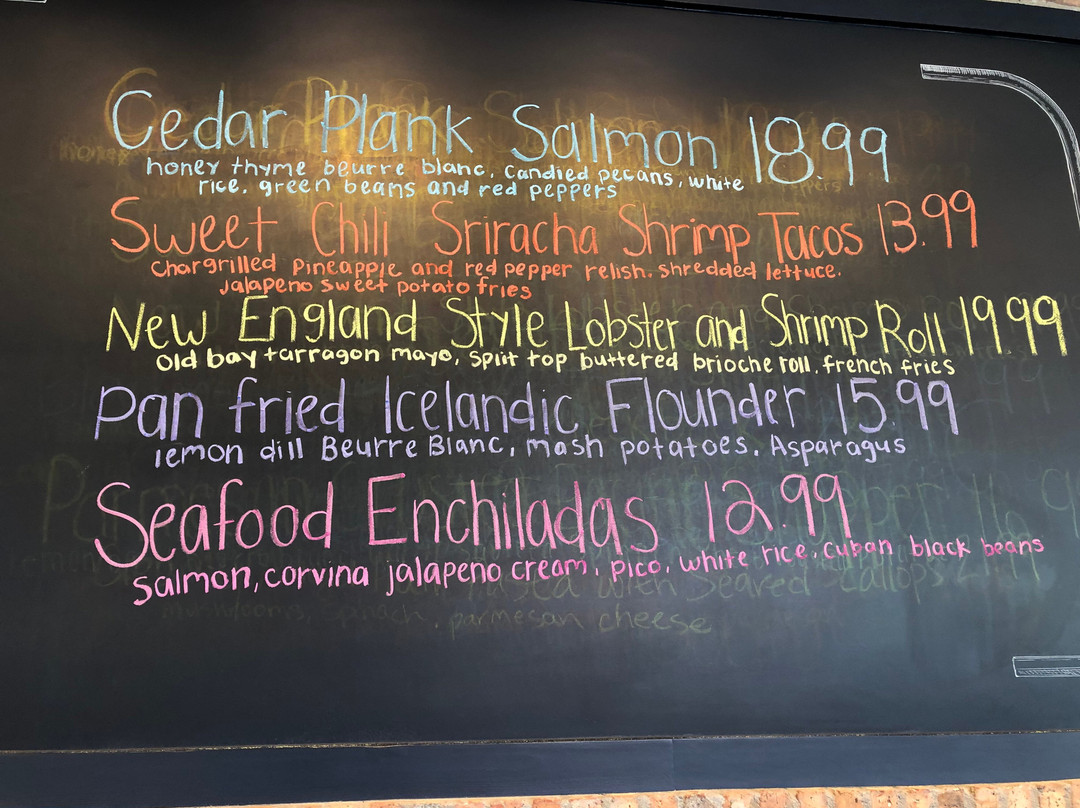 Cedar Plank Salmon 18.99
honey thyme beurre blanc. Candied pecans, white
rice, green beans and red peppers
Sweet Chili Sriracha Shrimp Tacos 13.99
chargrilled Pineapple and red pepper relish. shredded lettuce.
jalapeno sweet potato fries
New England Style Lobster and Shrimp Roll 19.99
Old bay tarragon mayo, split top buttered brioche roll, french fries
Pan fried Icelandic Flounder 15.99
lemon dill Beurre Blanc, mash potatoes. Asparagus
Seafood Enchiladas 12.99
Salmon, corvina jalapeno cream, pico, white rice, cuban black beans
Seared Scallops
spinach, parmesan cheese